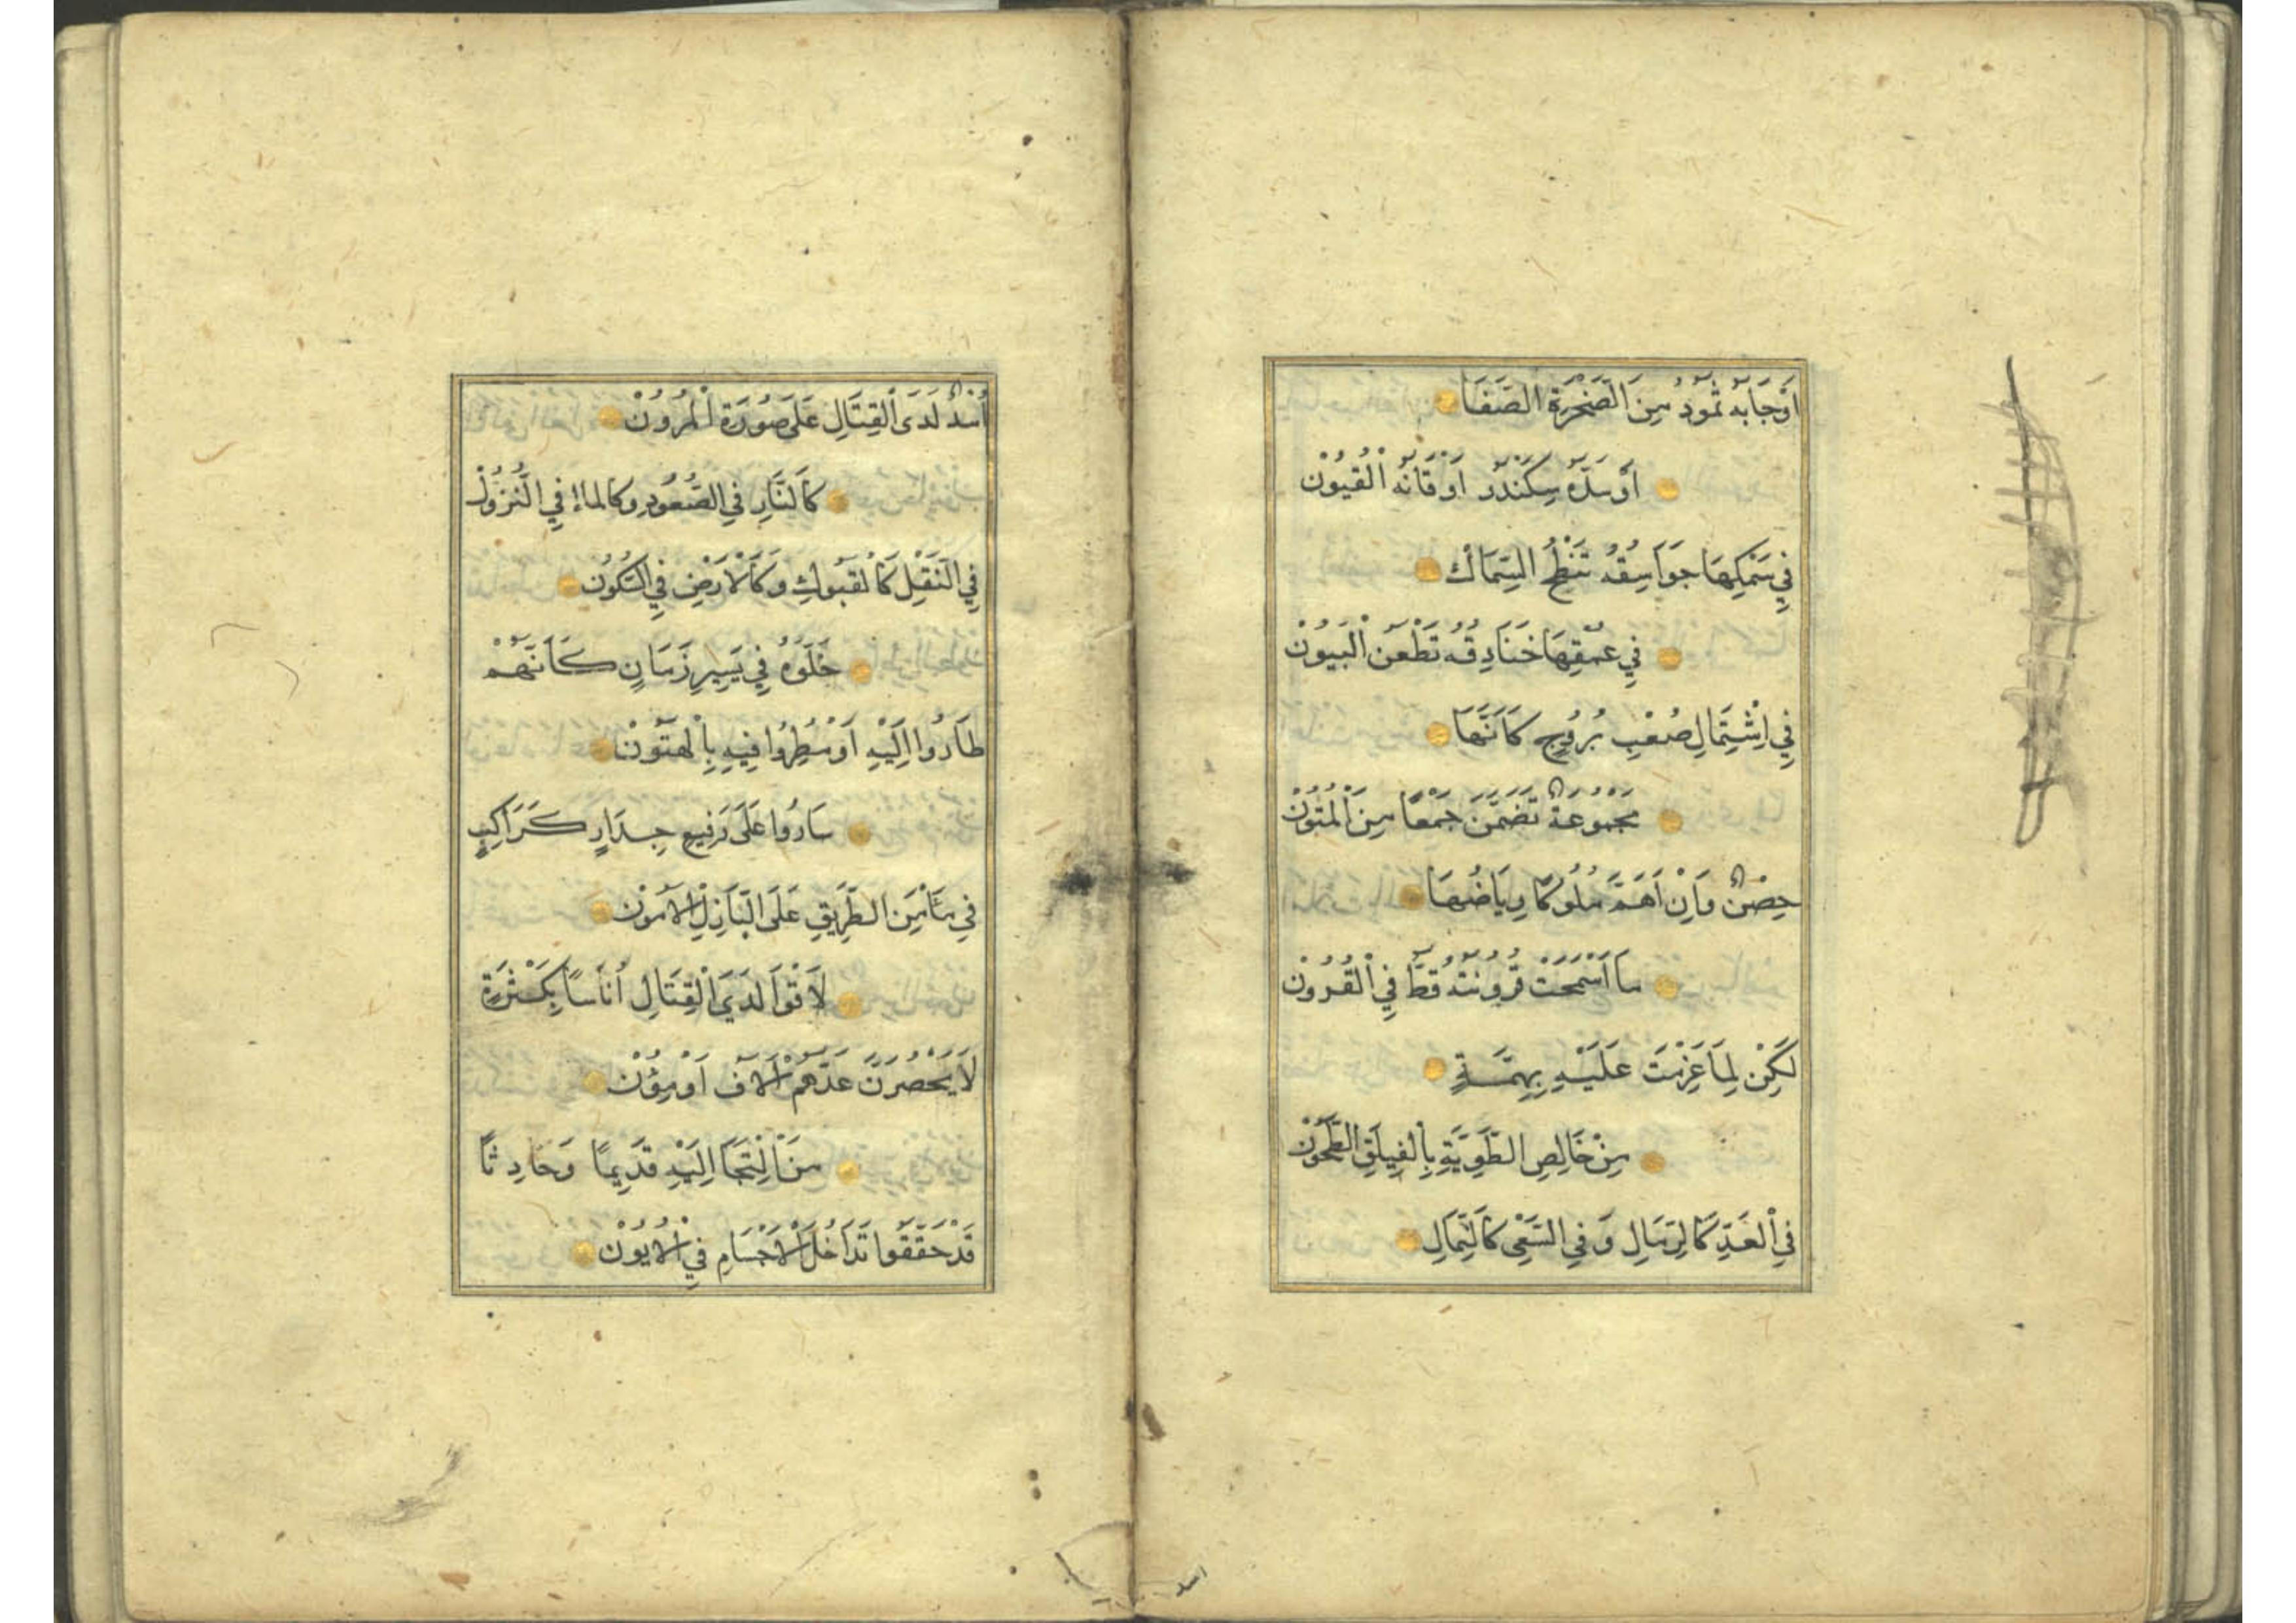 اَوْجَابَهُ ثَمُودُ مِنَ الصَّخْرَةِ الصَّفَا
اَوْسَدَّهُ سِكَنْدَرُ اَوْقَانَهُ الْقُيُونْ
فِي سَمْكِهَا جَوَاسِقُهُ تَنْطِحُ السِّمَاكْ
فِي عُمْقِهَا خَنَادِقُهُ تَطْعَنُ الْبُيُونْ
فِي اِشْتِمَالِ صُعْبِ بُرُوجٍ كَاَنَّهَا
مَجْمُوعَةٌ تَضَمَّنَ جَمْعًا مِنَ الْمُتُونْ
حِصْنٌ وَاِنْ اَهَمَّ مُلُوكًا رِيَاضُهَا
مَا اَسْمَحَتْ قُرُونَتُهُ قَطُّ فِي الْقُرُونْ
لٰكِنْ لِمَا عَزَمْتَ عَلَيْهِ بِهِمَّةٍ
مِنْ خَالِصِ الطَّوِيَّةِ بِالْفَيْلَقِ الطَّحُونْ
فِي الْعَدِّ كَالرِّمَالِ وَفِي السَّعْيِ كَالشِّمَالِ
اسد
اُسْدٌ لَدَى الْقِتَالِ عَلَى صُورَةِ الْمُرُونْ
كَالنَّارِ فِي الصُّعُودِ وكالماءِ فِي النُّزُولْ
فِي النَّقْلِ كَالْقَبُولِ وَكَالْاَرْضِ فِي السُّكُونْ
خَلَوْهُ فِي يَسِيرِ زَمَانٍ كَاَنَّهُمْ
طَارُوا اِلَيْهِ اَوْ مُطِرُوا فِيهِ بِالْهَتُونْ
سَارُوا عَلَى رَفِيعِ جِدَارٍ كَرَاكِبٍ
فِي مَأْمَنِ الطَّرِيقِ عَلَى الْبَازِلِ الْاَمُونْ
لَاقَوْا لَدَى الْقِتَالِ اُنَاسًا بِكَثْرَةٍ
لَا يَحْصُرَنَّ عَدَّهُمْ اٰلَافٌ اَوْ مِؤُنْ
مَنْ اِلْتَجَا اِلَيْهِ قَدِيمًا وَحَادِثًا
قَدْ حَقَّقُوا تَدَاخُلَ الْاَجْسَامِ فِي الْاُيُونْ